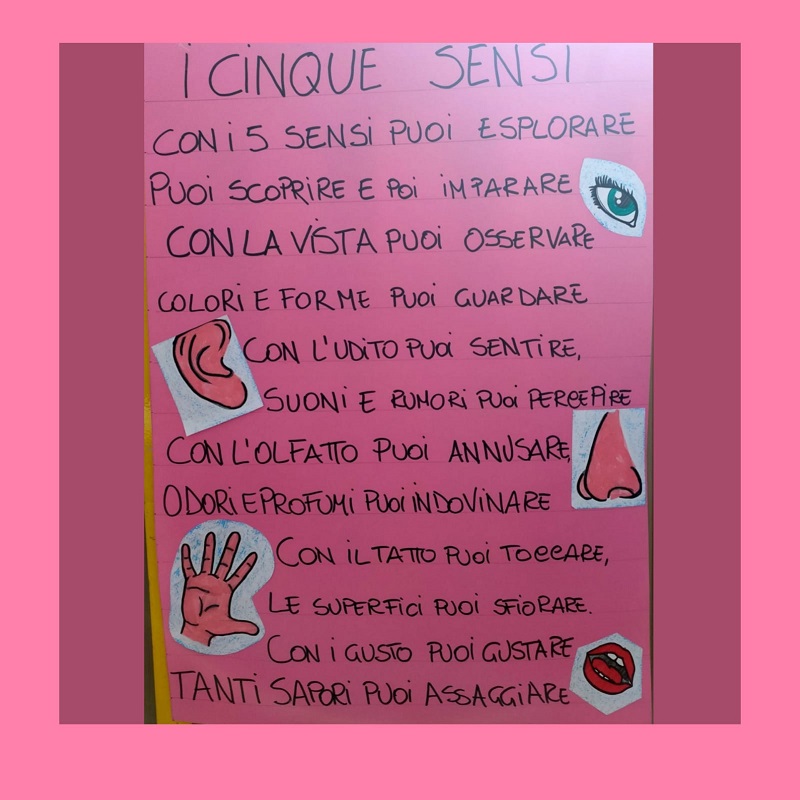 I CINQUE SENSI
CON I 5 SENSI PUOI ESPLORARE
PUOI SCOPRIRE E POI IMPARARE
CON LA VISTA PUOI OSSERVARE
COLORI E FORME PUOI GUARDARE
CON L'UDITO PUOI SENTIRE,
SUONI E RUMORI PUOI PERCEPIRE
CON L'OLFATTO PUOI ANNUSARE,
ODORI E PROFUMI PUOI INDOVINARE
CON IL TATTO PUOI TOCCARE,
LE SUPERFICI PUOI SFIORARE.
CON I GUSTO PUOI GUSTARE
TANTI SAPORI PUOI ASSAGGIARE